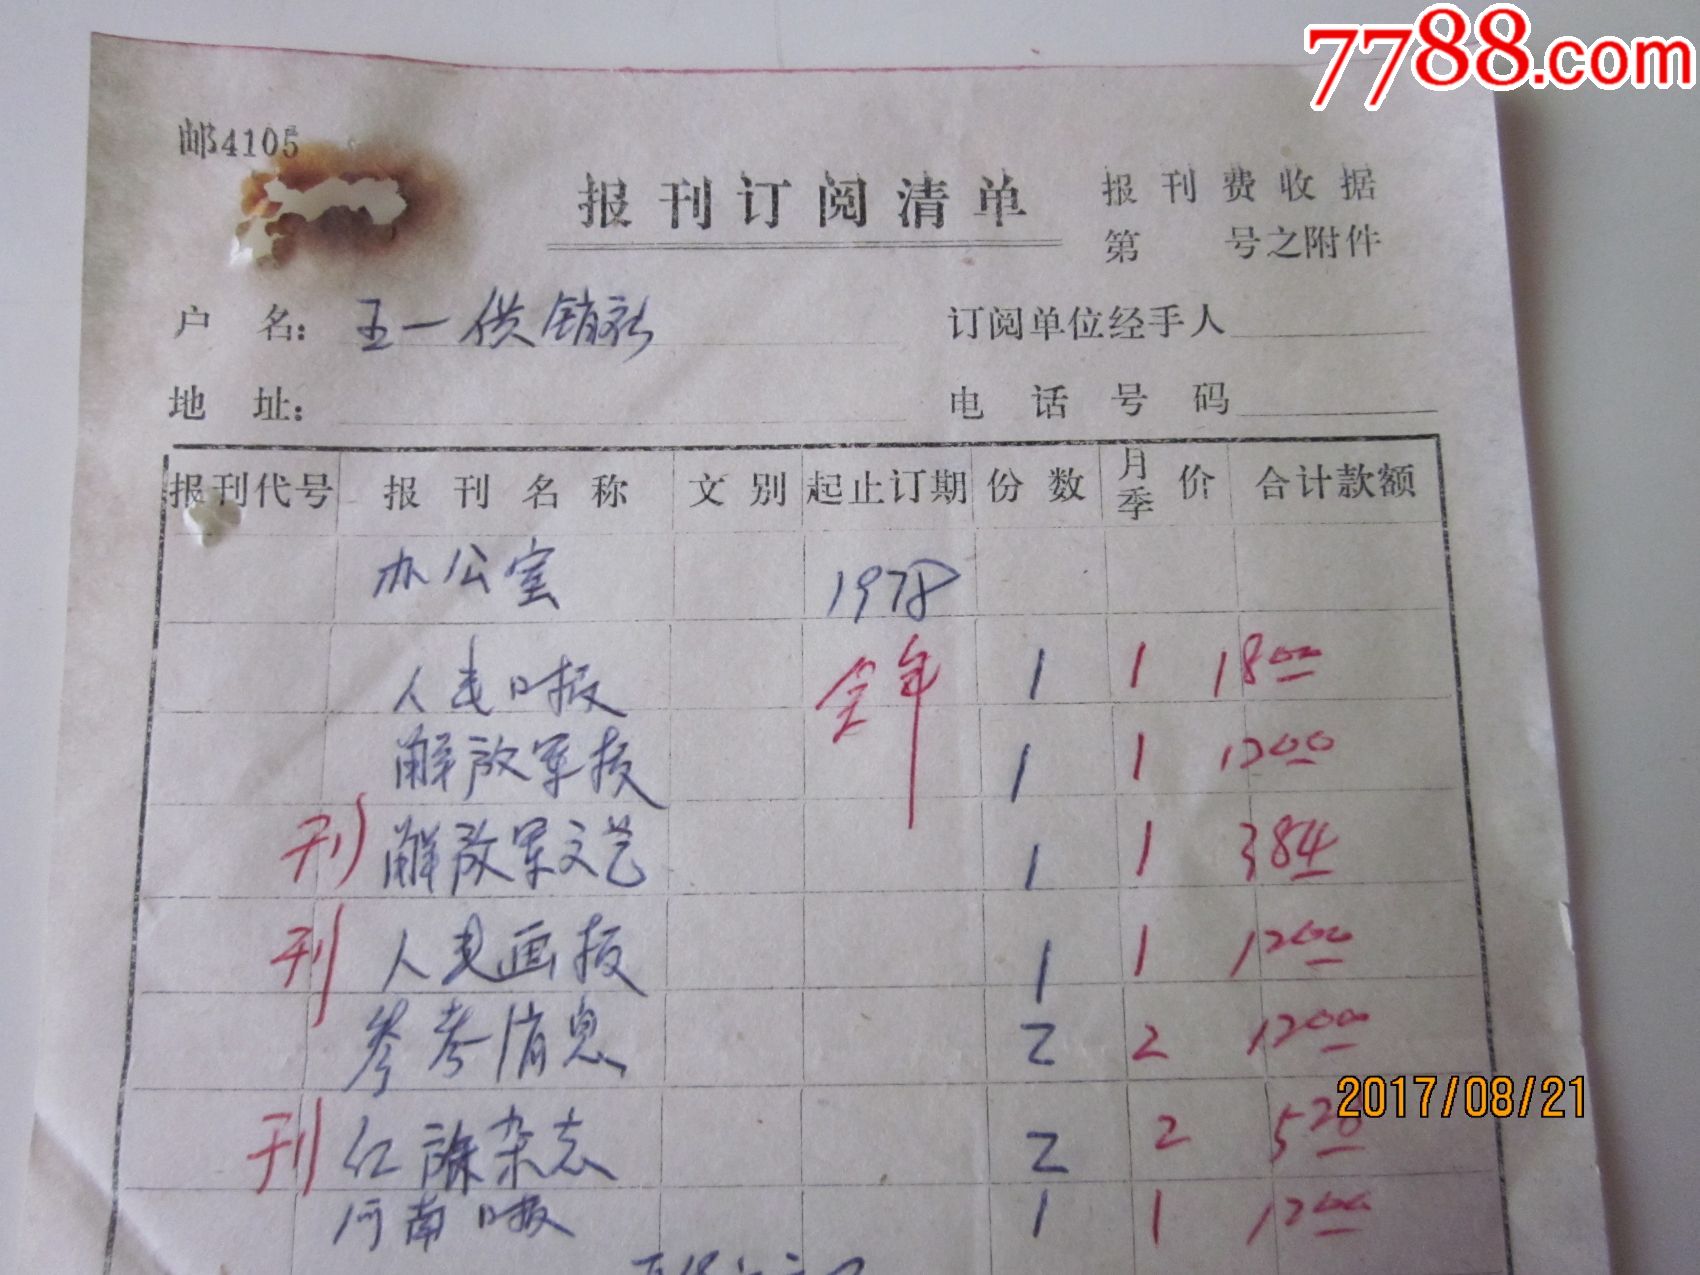 7788.com
邮4105
报刊订阅清单
报刊费收据
第 号之附件
户 名: 五一供销社
订阅单位经手人
地 址:
电话号码
报刊代号 报刊名称 文别 起止订期 份数 月季价 合计款额
办公室 1978
人民日报 全年 1 1 18.00
解放军报 1 1 12.00
刊 解放军文艺 1 1 3.84
刊 人民画报 1 1 12.00
参考消息 2 2 12.00
2017/08/21
刊 红旗杂志 2 2 5.28
河南日报 1 1 12.00